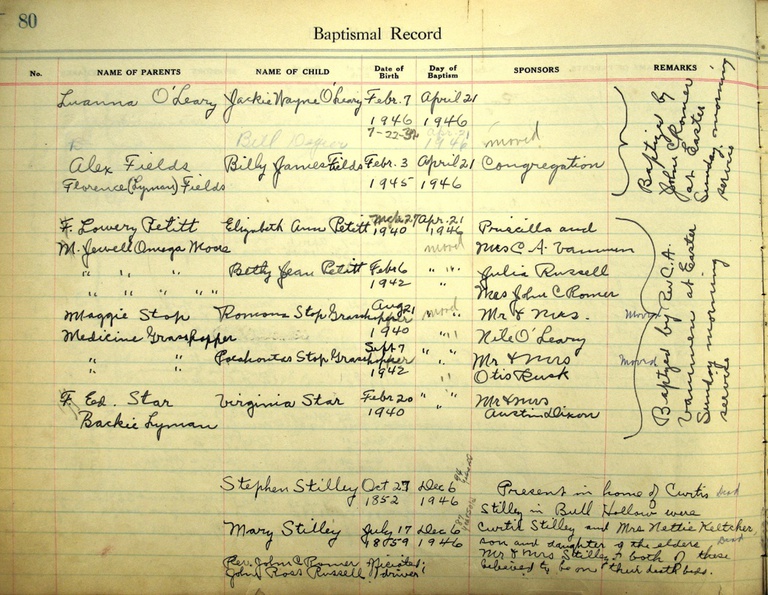 80
Baptismal Record
No. NAME OF PARENTS NAME OF CHILD Date of Birth Day of Baptism SPONSORS REMARKS
Luanna O'Leary Jackie Wayne O'Leary Febr. 7 April 21
1946 1946
7-22-34 Apr. 21
Bill 1946 moved
Alex Fields Billy James Fields Febr. 3 April 21 Congregation
Florence (Lyman) Fields 1945 1946
Baptized by
John C Romer
at Easter
Sunday morning
service
F. Lowery Petitt Elizabeth Ann Petitt Mch 27 Apr. 21 Priscilla and
1940 1946
M. Jewell Omega Moore moved Mrs C. A. Vammen
" " " Betty Jean Petitt Feb 6 " " Julia Russell
" " " " 1942 Mrs John C Romer
Maggie Stop Romona Stop Grasshopper Aug 21 moved Mr & Mrs. Moved
Medicine Grasshopper 1940 " " Nile O'Leary
" " Pocahontas Stop Grasshopper Sept 7 " " Mr & Mrs moved
1942 " Otis Rusk
F. Ed. Star Virginia Star Febr 20 " " Mr & Mrs
Backie Lyman 1940 " Austin Dixon
Baptyzed by Rev C. A.
Vammen at Easter
Sunday morning
service
Stephen Stilley Oct 27 Dec 6 Present in home of Curtis Dead
1852 1946 Stilley in Bull Hollow were
Mary Stilley July 17 Dec 6 Curtis Stilley and Mrs Nettie Keltcher
1859 1946 son and daughter of the elders Dead
Mr & Mrs Stilley & both of these
Rev. John C Romer
believed to be on their death beds.
John Ross Russell driver